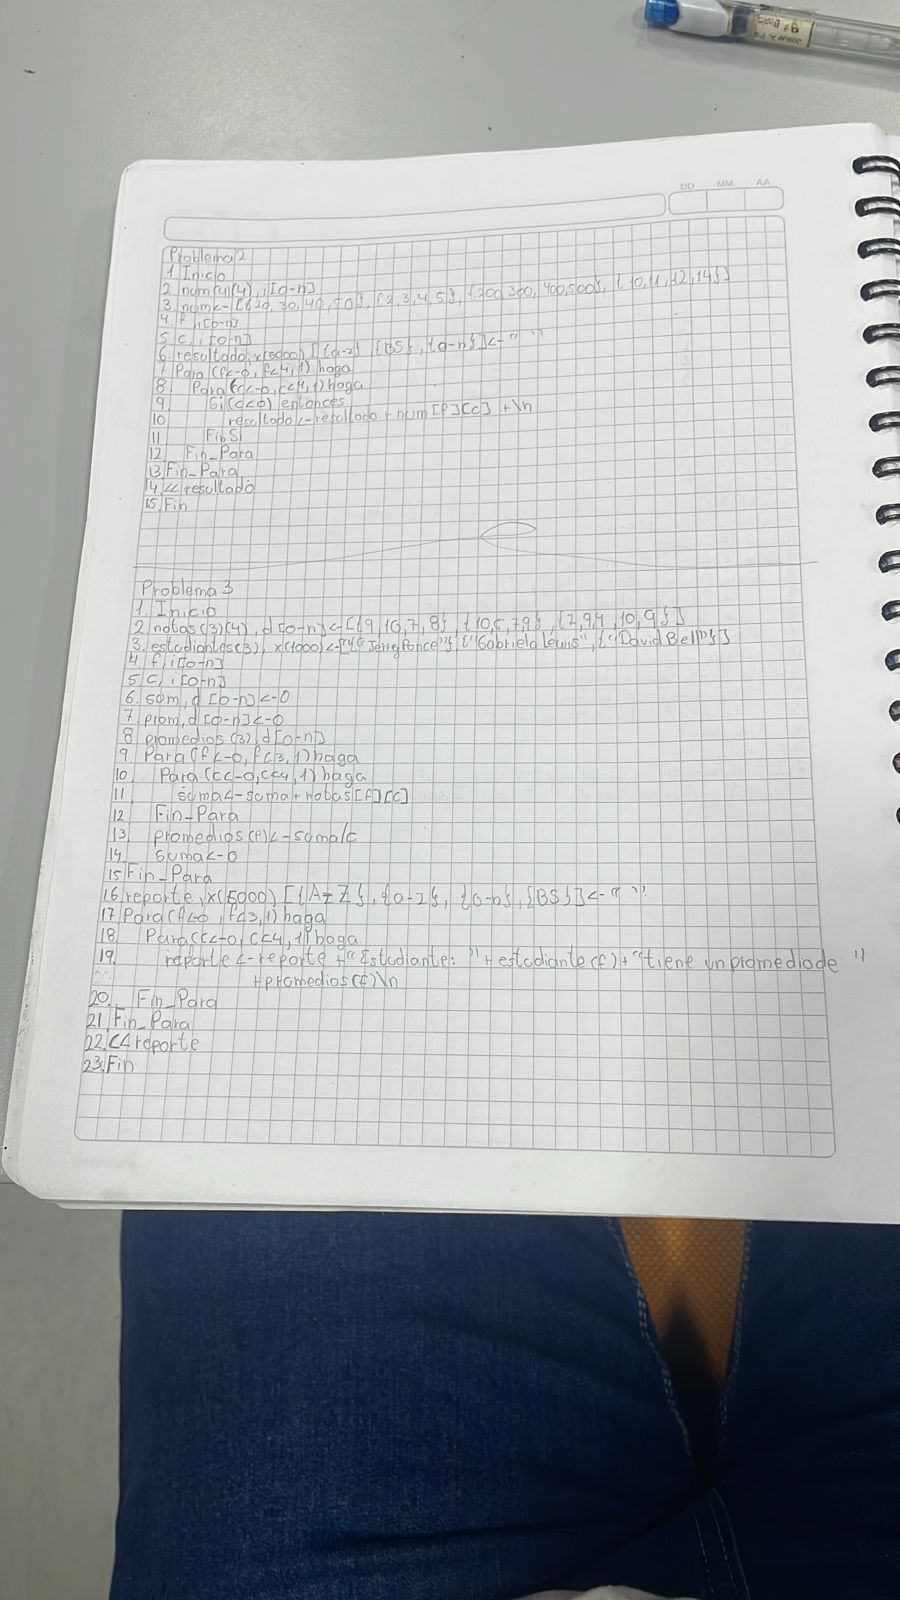 DD MM AA
Problema 2
1 Inicio
2 num(4)(4), i[0-n]
3 num<-[{20, 30, 40, 50}, {2, 3, 4, 5}, {200, 300, 400, 500}, {10, 11, 12, 14}]
4 f, i[0-n]
5 c, i[0-n]
6. resultado, x(5000) [{a-z}, {BS}, {0-n}]<-" "
7 Para (f<-0, f<4, 1) haga
8 Para (c<-0, c<4, 1) haga
9 Si(c<f) entonces
10 resultado <-resultado + num [f][c] +\n
11 Fin Si
12 Fin_Para
13 Fin_Para
14 << resultado
15. Fin
Problema 3
1. Inicio
2 notas(3)(4), d[0-n]<-[{9, 10, 7, 8}, {10, 5, 7, 9}, {7, 9.4, 10, 9}]
3. estudiantes(3), x(1000)<-[{"Jerry Ponce"}, {"Gabriela Lewis", {"David Bell"}]
4. f, i[0-n]
5 c, i[0-n]
6. sum, d[0-n]<-0
7. prom, d[0-n]<-0
8 promedios(3), d[0-n]
9. Para (f<-0, f<3, 1) haga
10 Para (c<-0, c<4, 1) haga
11 suma<-suma+notas[f][c]
12 Fin-Para
13 promedios(f)<-suma/c
14 suma<-0
15 Fin_Para
16. reporte, x(5000) [{A-Z}, {a-z}, {0-n}, {BS}]<-" "
17 Para(f<-0, f<3, 1) haga
18 Para(c<-0, c<4, 1) haga
19. reporte <-reporte +"Estudiante: "+estudiante(f)+"tiene un promedio de "
+promedios(f)\n
20. Fin_Para
21 Fin_Para
22. << reporte
23. Fin